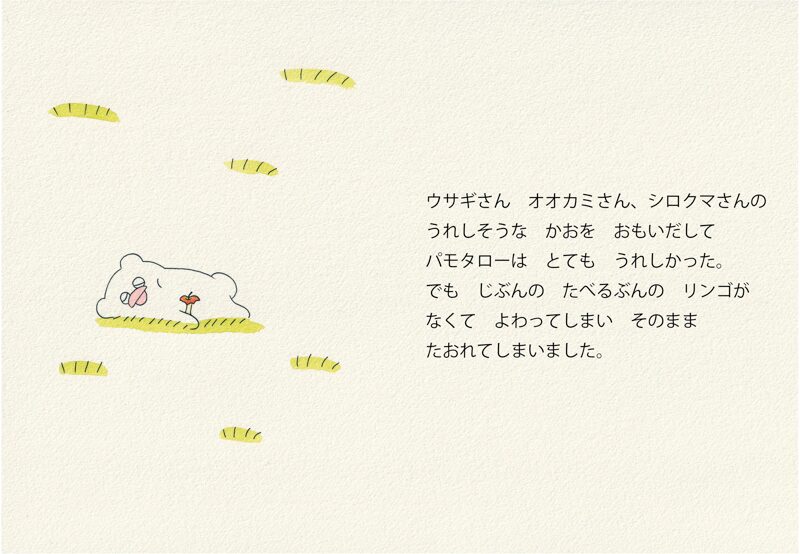 ウサギさん　オオカミさん、シロクマさんの
うれしそうな　かおを　おもいだして
パモタローは　とても　うれしかった。
でも　じぶんの　たべるぶんの　リンゴが
なくて　よわってしまい　そのまま
たおれてしまいました。